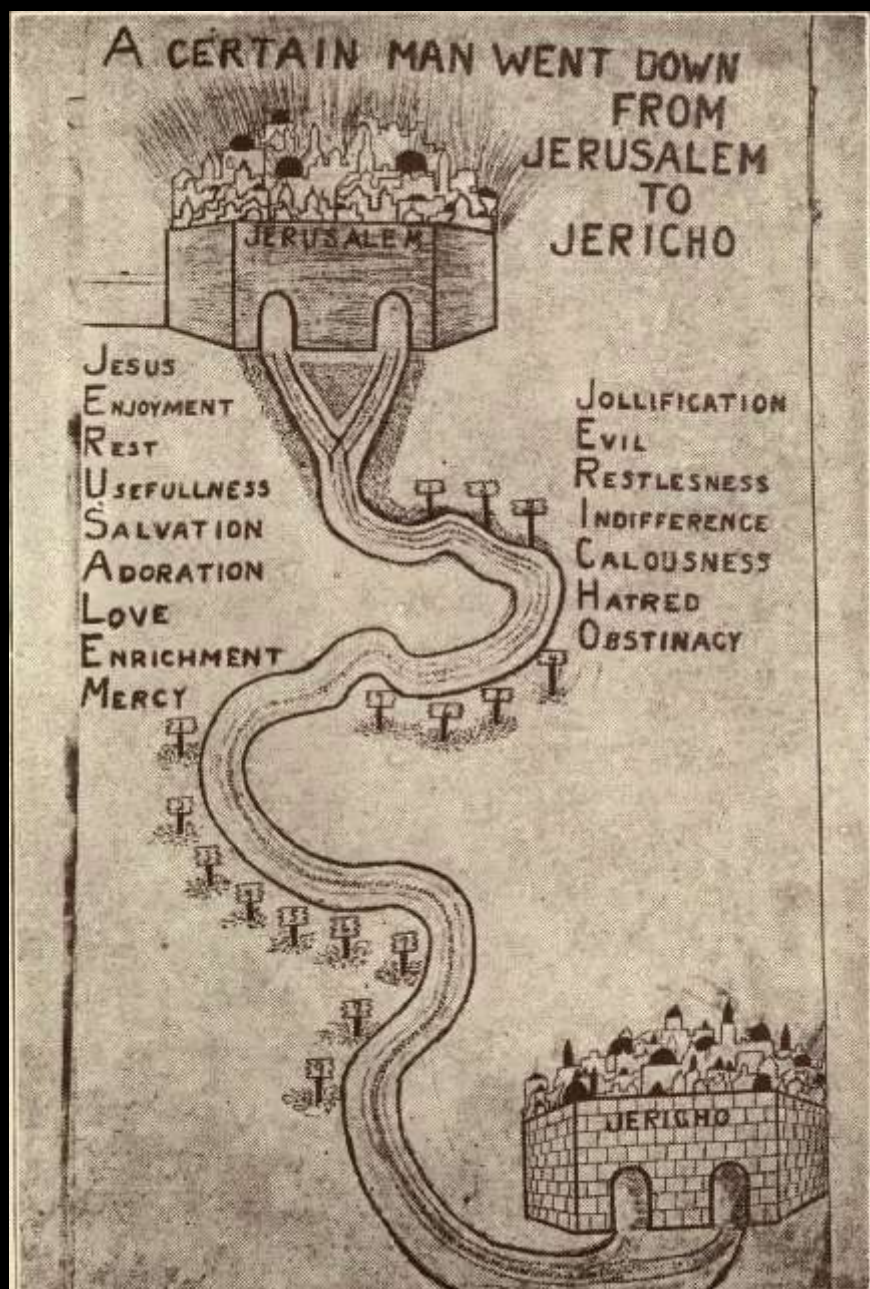 A CERTAIN MAN WENT DOWN
FROM
JERUSALEM
TO
JERICHO
JERUSALEM
JESUS
ENJOYMENT
REST
USEFULLNESS
SALVATION
ADORATION
LOVE
ENRICHMENT
MERCY
JOLLIFICATION
EVIL
RESTLESNESS
INDIFFERENCE
CALOUSNESS
HATRED
OBSTINACY
1
2
3
4
5
6
7
9
JERICHO